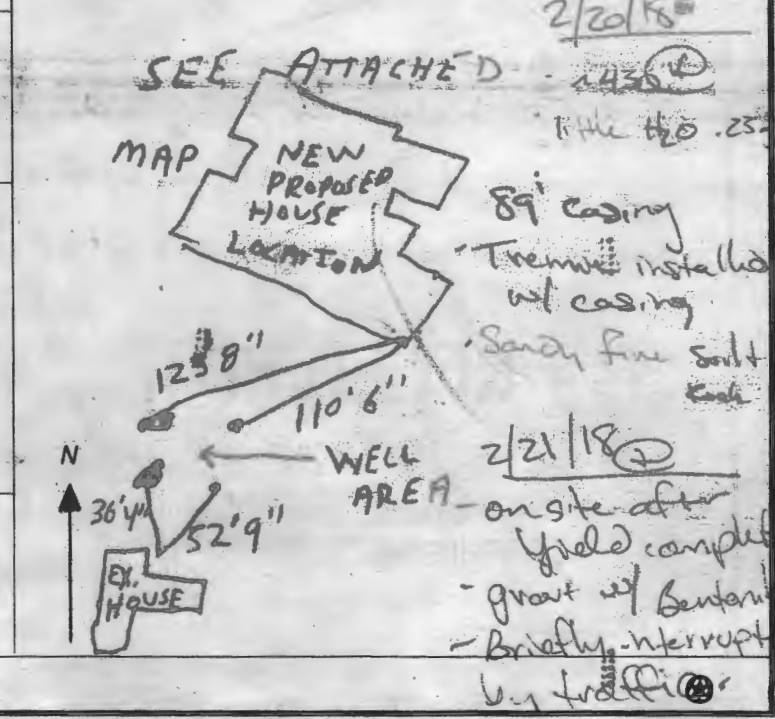 2/20/18
SEE ATTACHED
MAP
~430
little H2O .25
NEW
PROPOSED
HOUSE
LOCATION
89' casing
- Tremie installed
w/ casing
- Sandy fine
125'8"
110'6"
WELL
AREA
N
36'4"
52'9"
EX.
HOUSE
2/21/18
- on site after
Yield complet
- grout w/ Bentoni
- Briefly interrupt
by traffic.